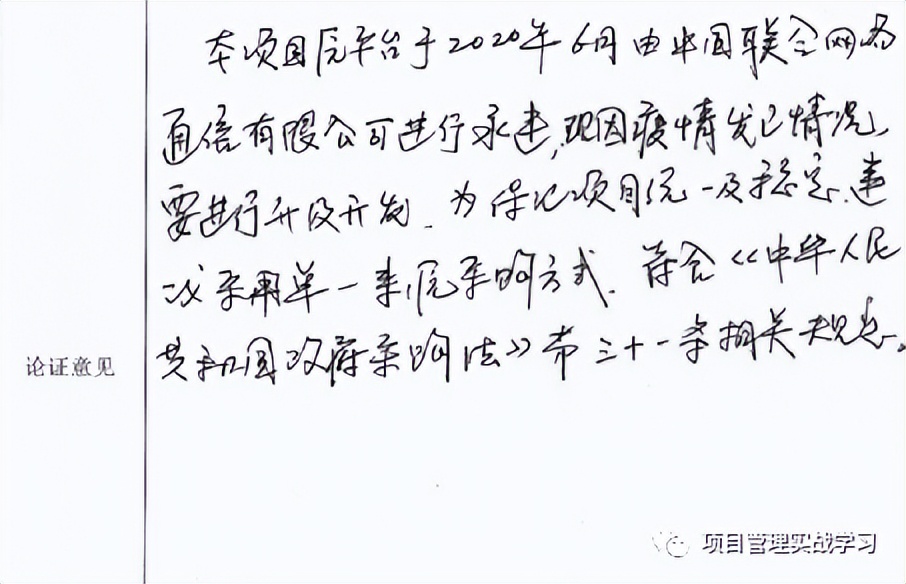 本项目原平台于2020年6月由中国联合网络
通信有限公司进行承建,现因疫情发已情况,
要进行升级开发.为保证项目统一及稳定.建
议采用单一来源采购方式.符合《中华人民
共和国政府采购法》第三十一条相关规定。
论证意见
项目管理实战学习